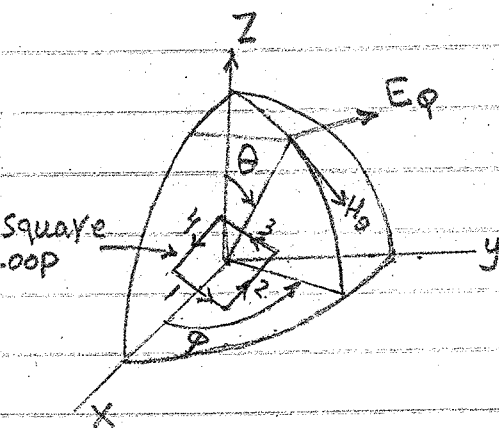 Z
Eφ
θ
Hθ
square
oop
4
3
1
2
y
φ
X